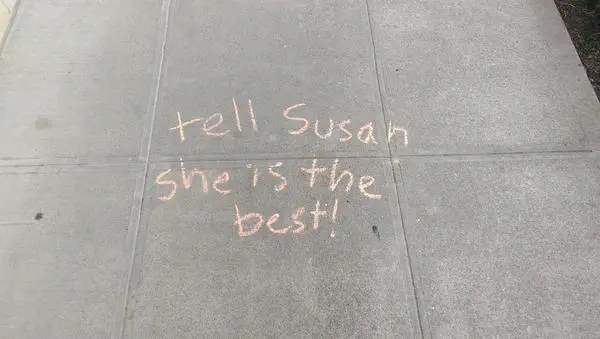 tell Susan
she is the
best!